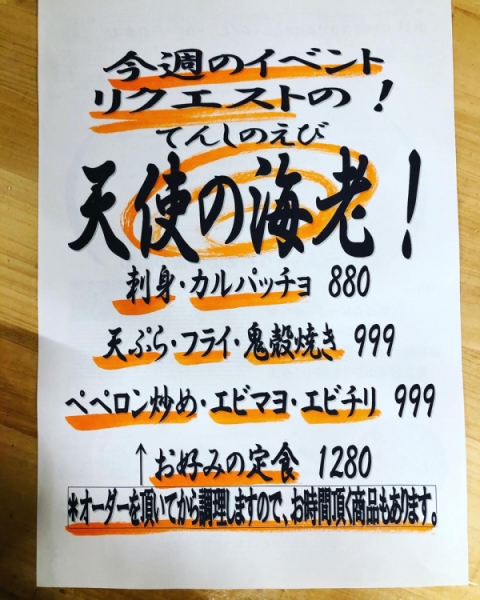 今週のイベント
リクエストの！
てんしのえび
天使の海老！
刺身・カルパッチョ 880
天ぷら・フライ・鬼殻焼き 999
ペペロン炒め・エビマヨ・エビチリ 999
↑お好みの定食 1280
*オーダーを頂いてから調理しますので、お時間頂く商品もあります。